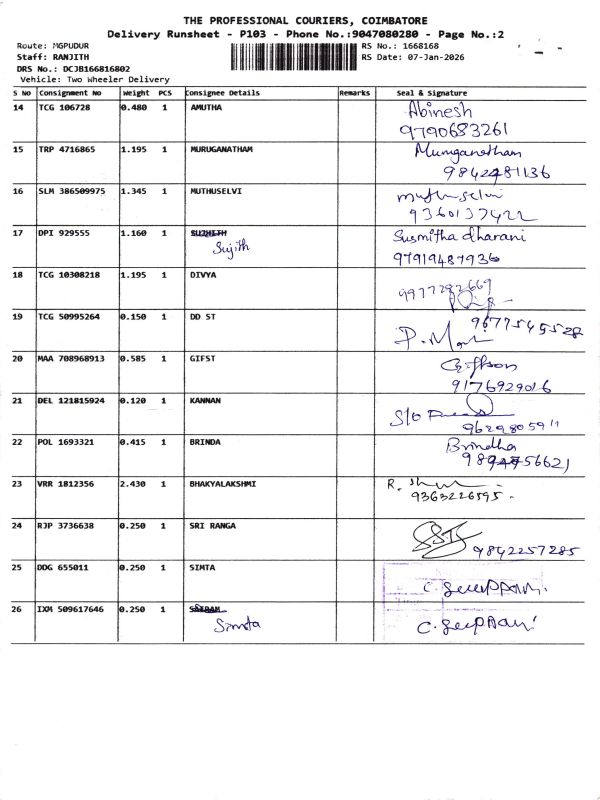 THE PROFESSIONAL COURIERS, COIMBATORE
Delivery Runsheet - P103 - Phone No.:9047080280 - Page No.:2
Route: MGPUDUR RS No.: 1668168
Staff: RANJITH RS Date: 07-Jan-2026
DRS No.: DCJB166816802
Vehicle: Two Wheeler Delivery
S No Consignment No Weight PCS Consignee Details Remarks Seal & Signature
14 TCG 106728 0.480 1 AMUTHA Abinesh
9790683261
15 TRP 4716865 1.195 1 MURUGANATHAM Muruganatham
9842481136
16 SLM 386509975 1.345 1 MUTHUSELVI muthuselvi
9360137422
17 DPI 929555 1.160 1 SUJHITH Susmitha dharani
Sujith 97919487936
18 TCG 10308218 1.195 1 DIVYA
9977282669
19 TCG 50995264 0.150 1 DD ST 9677545528
20 MAA 708968913 0.585 1 GIFST Gifson
9176929016
21 DEL 121815924 0.120 1 KANNAN S/o
9629805911
22 POL 1693321 0.415 1 BRINDA Brindha
56621
23 VRR 1812356 2.430 1 BHAKYALAKSHMI R.
9363226595.
24 RJP 3736638 0.250 1 SRI RANGA
9842257285
25 DDG 655011 0.250 1 SIMTA C.
26 IXM 509617646 0.250 1 C.
Simta